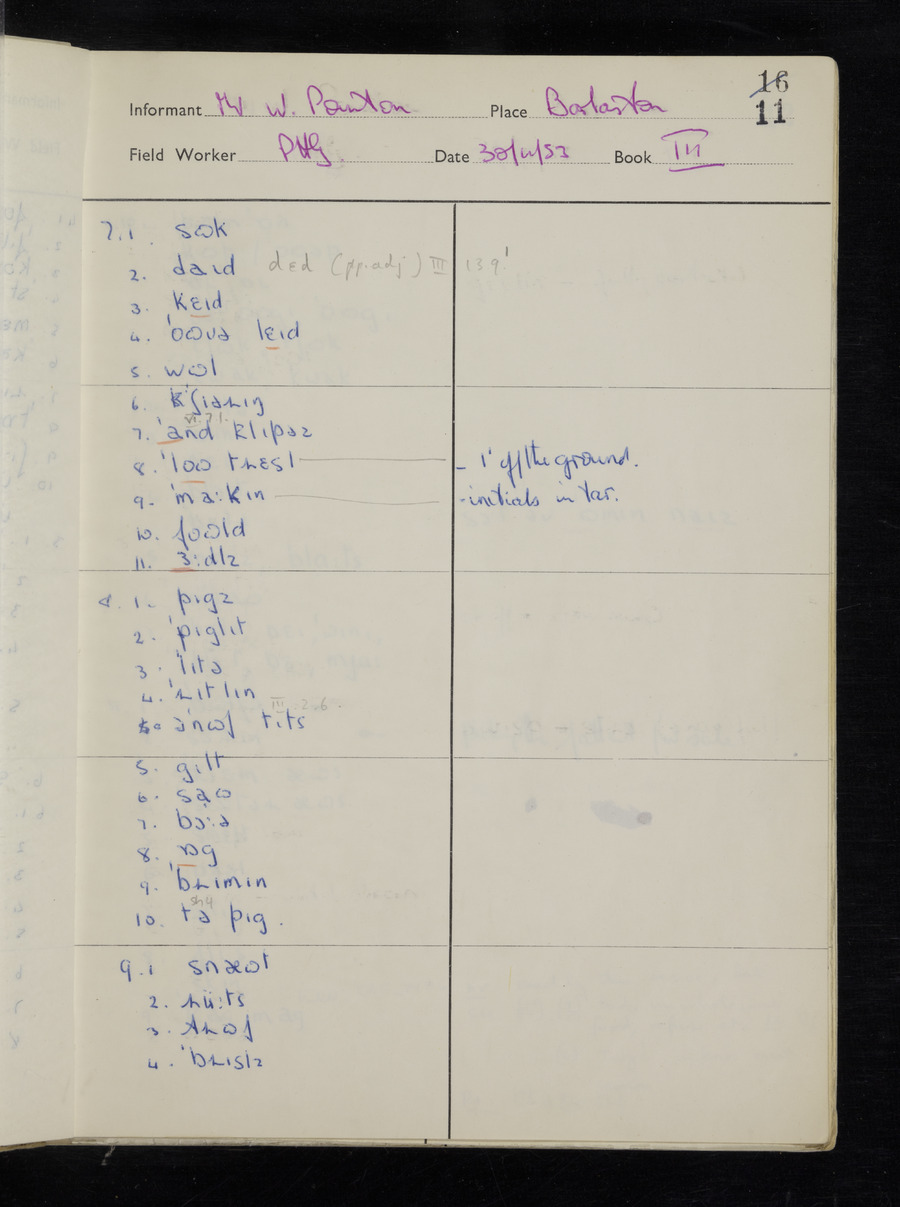 16
11
Informant Mr W. Painton Place Barlaston
Field Worker PHG Date 30/11/53 Book III
7.1. sʊk
2. daɪd dɛd (pp.adj) III 139'
3. kɛɪd
4. 'ɒʊvə lɛɪd
5. wʊl
6. 'ʃiəɹɪŋ
VI.7.1.
7. 'and klɪpəz
8. 'lʊʊ tɹɛsl – 1' off the ground.
9. 'ma:kɪn - initials in tar.
10. fʊʊld
11. ɜ:dlz
8. 1. pɪgz
2. 'pɪglɪt
3. 'lɪtə
4. 'ɹɪtlɪn
III.2.6.
ɪ'nʊf tɪts
5. gɪlt
6. saʊ
7. bɔ:ə
8. ɒg
9. 'bɹɪmɪn
sh4
10. tə pɪg.
9.1 snæʊt
2. ɹüːts
3. tɹʊf
4. 'bɹɪslz